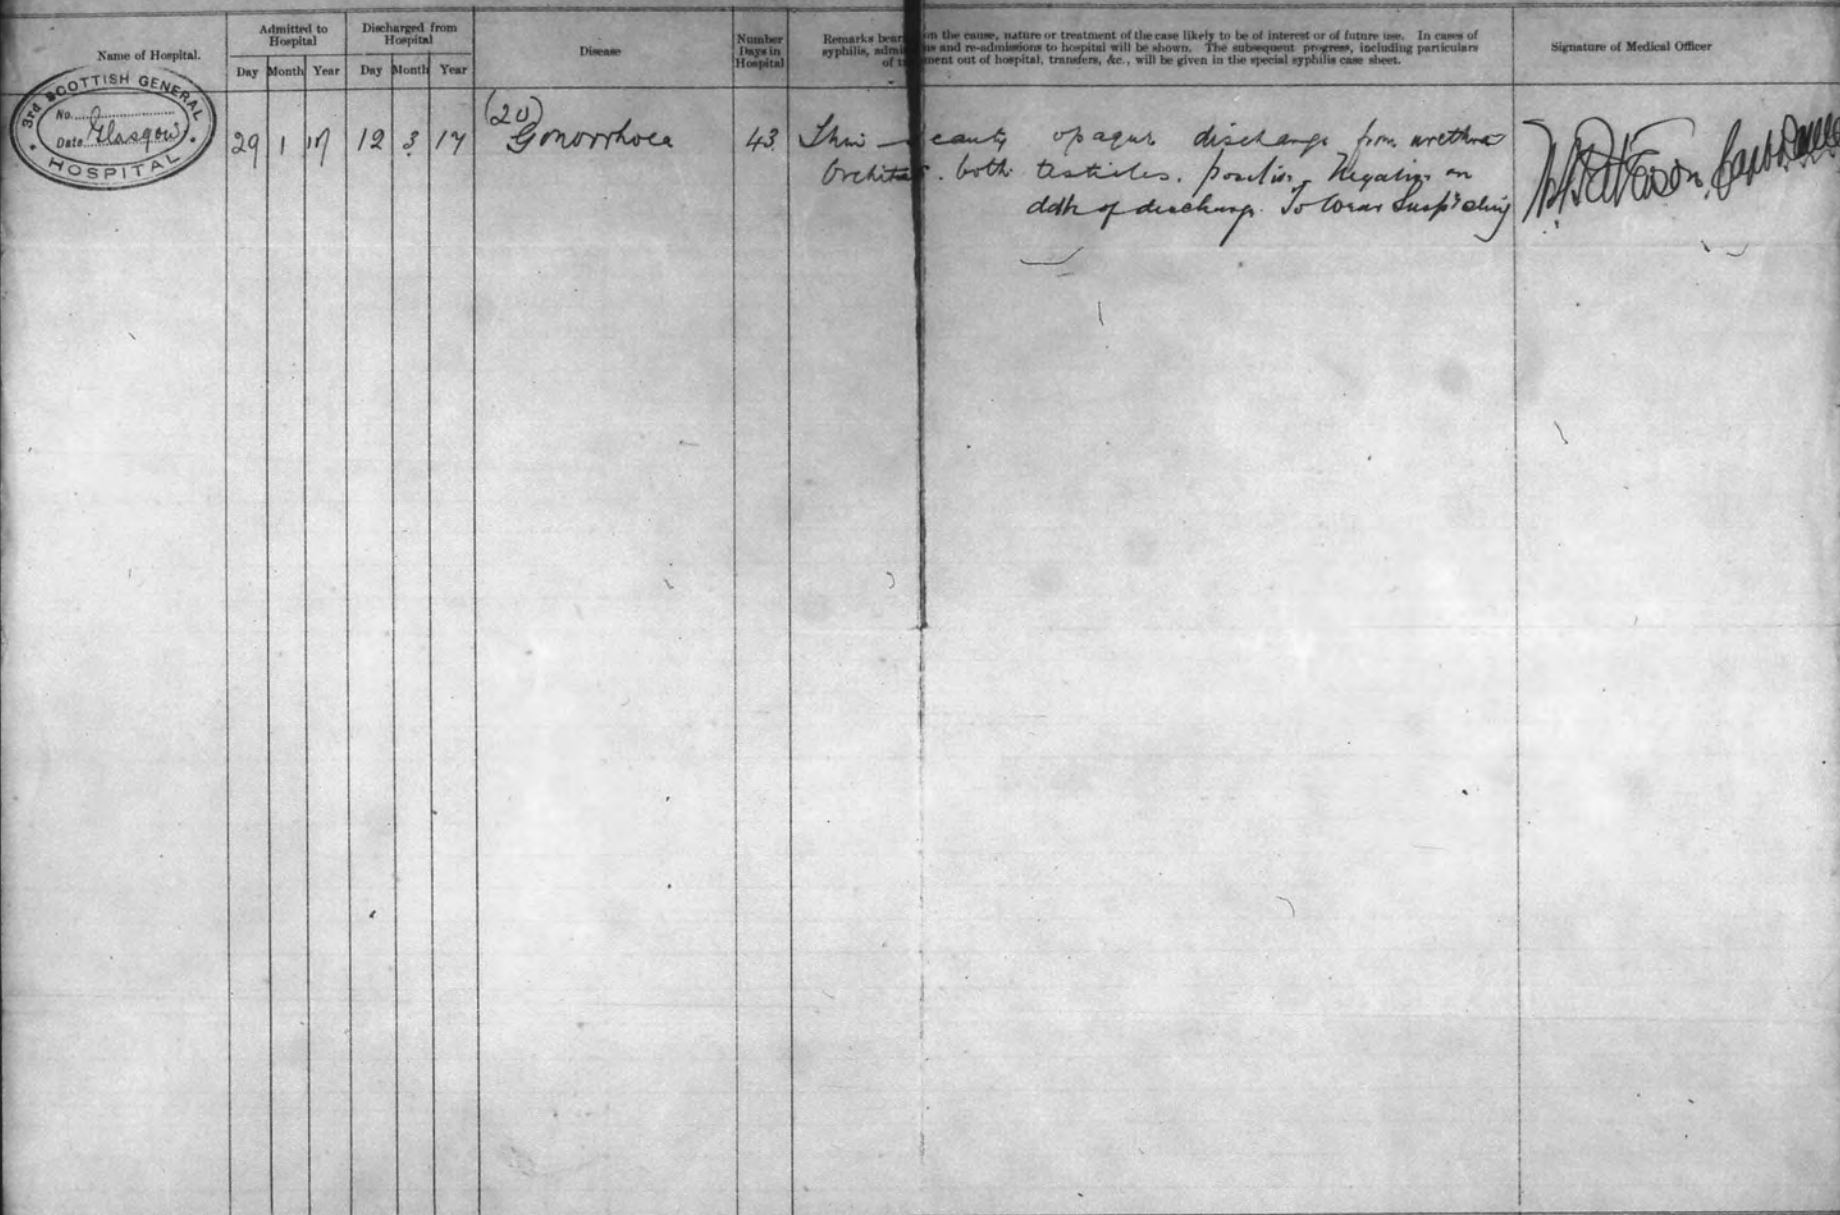 Name of Hospital.
Admitted to
Hospital
Day Month Year
Discharged from
Hospital
Day Month Year
Disease
Number
Days in
Hospital
Remarks bear on the cause, nature or treatment of the case likely to be of interest or of future use. In cases of
syphilis, admi ns and re-admissions to hospital will be shown. The subsequent progress, including particulars
of t ment out of hospital, transfers, &c., will be given in the special syphilis case sheet.
Signature of Medical Officer
3rd SCOTTISH GENERAL
No.
Date Glasgow
HOSPITAL
29 1 17 12 3 17
(20)
Gonorrhoea
43
Thin canty opaque discharge from urethra
Orchitis. both testicles. positive Negative on
date of discharge. To wear Susp